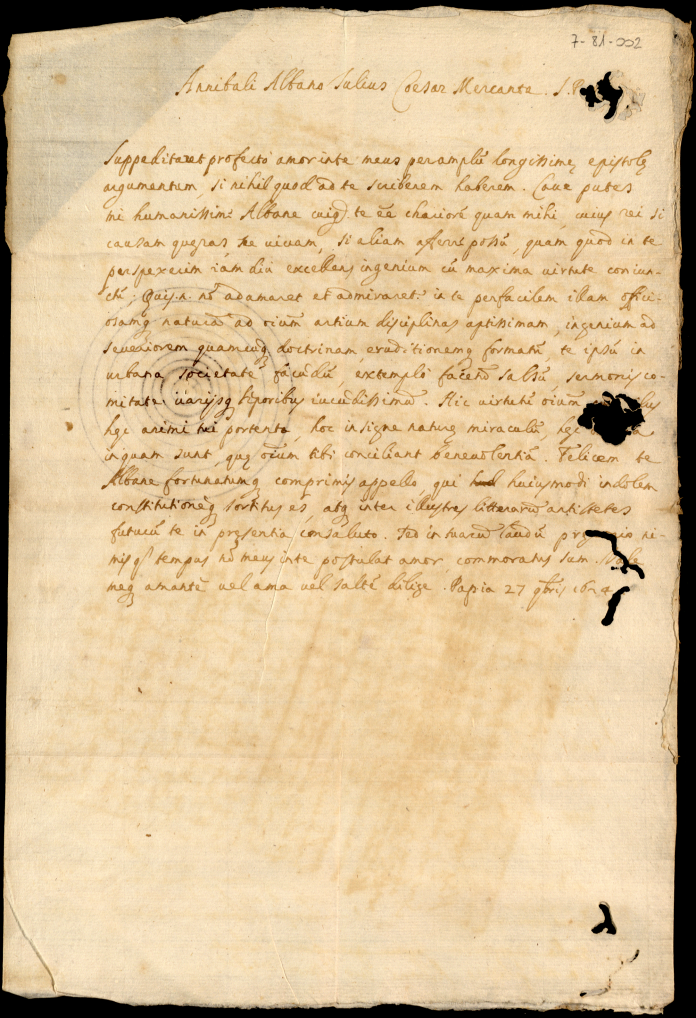 7-81-002
Annibali Albano Iulius Coesar Mercante. S.P.
Suppeditaret profecto amor in te meus peramplũ longissimę epistolę
argumentum, si nihil quod ad te scriberem haberem. Caue putes
mi humanissime Albane te eẽ chariorẽ quam mihi, cuius rei si
causam quęras, ne uiuam, si aliam afferre possũ, quam quod in te
perspexerim iam diu excellens ingenium cũ maxima uirtute coniun-
ctũ. Quis.n. nõ adamaret et admiraret. in te perfacilem illam offici-
osamq naturã ad oium artium disciplinas aptissimam, ingenium ad
seueriorem quamcuq doctrinam, eruditionemq formatũ, te ipsũ in
urbana societate facũdũ, extemplo facetũ salsũ, sermonis co-
mitate uarijsq leporibus iucudissimum. Hic uirtutũ oium
hęc animi tui portenta, hoc insigne naturę miraculũ, hęc
inquam sunt, quę oium tibi conciliant beneuolentiã. Felicem te
Albane fortunatumq comprimis appello, qui huiusmodi indolem
constitutionemq sortitus es, atq inter illustres litterarum antistetes
futurũ te in pręsentia consaluto. Sed in tuarum laudũ ni-
mis tempus nõ meus in te postulat amor commoratus sum. Vale
meq amantẽ uel ama uel saltẽ dilige. Papia 27 qbris